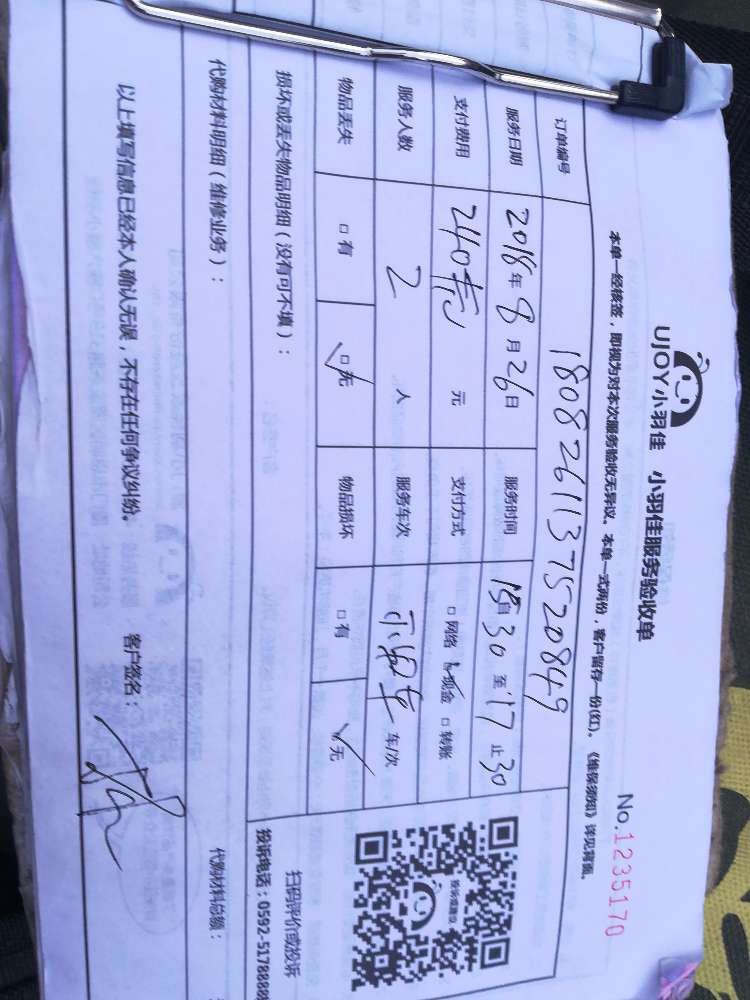 UJOY小羽佳 小羽佳服务验收单
No.1235170
本单一经核签，即视为对本次服务验收无异议。本单一式两份，客户留存一份(红)。《维保须知》详见背面。
订单编号 1808261137520849
服务日期 2018年8月26日 服务时间 15 30 至 17 止 30
支付费用 240 元 支付方式 □网络 ☑现金 □转账
服务人数 2 人 服务车次 车/次
物品丢失 □有 ☑无 物品损坏 □有 ☑无
损坏或丢失物品明细（没有可不填）：
投诉或建议
扫码评价或投诉
投诉电话：0592-5178888
代购材料明细（维修业务）：
代购材料总额：
以上填写信息已经本人确认无误，不存在任何争议纠纷。 客户签名：